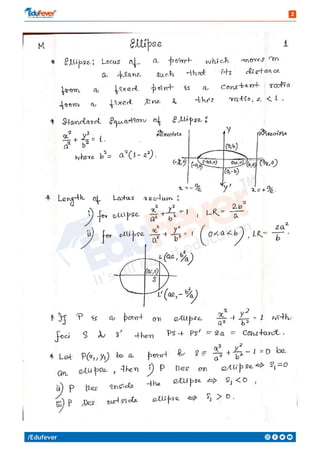 Edufever
2
M Ellipse 1
* Ellipse: Locus of a point which moves in
a plane such that its distance
from a fixed point is a constant ratio
from a fixed line & this ratio, e < 1.
* Standard Equation of Ellipse:
x²/a² + y²/b² = 1.
where b² = a²(1-e²).
Directrix Y Directrix
(0,b)
(-a,0) (-ae,0) (ae,0) (a,0)
(0,-b)
x = -a/e Y' x = +a/e
* Length of Latus rectum:
i) for ellipse x²/a² + y²/b² = 1, LR = 2b²/a
ii) for ellipse x²/a² + y²/b² = 1 (0<a<b), LR = 2a²/b.
L(ae, b²/a)
(ae,0)
S
L'(ae, -b²/a)
If P is a point on ellipse x²/a² + y²/b² = 1 with
foci S & S' then PS + PS' = 2a = Constant.
* Let P(x₁, y₁) be a point & S ≡ x²/a² + y²/b² - 1 = 0 be
an ellipse, then i) P lies on ellipse ⇔ S₁ = 0
ii) P lies inside the ellipse ⇔ S₁ < 0,
iii) P lies outside ellipse ⇔ S₁ > 0.
/Edufever